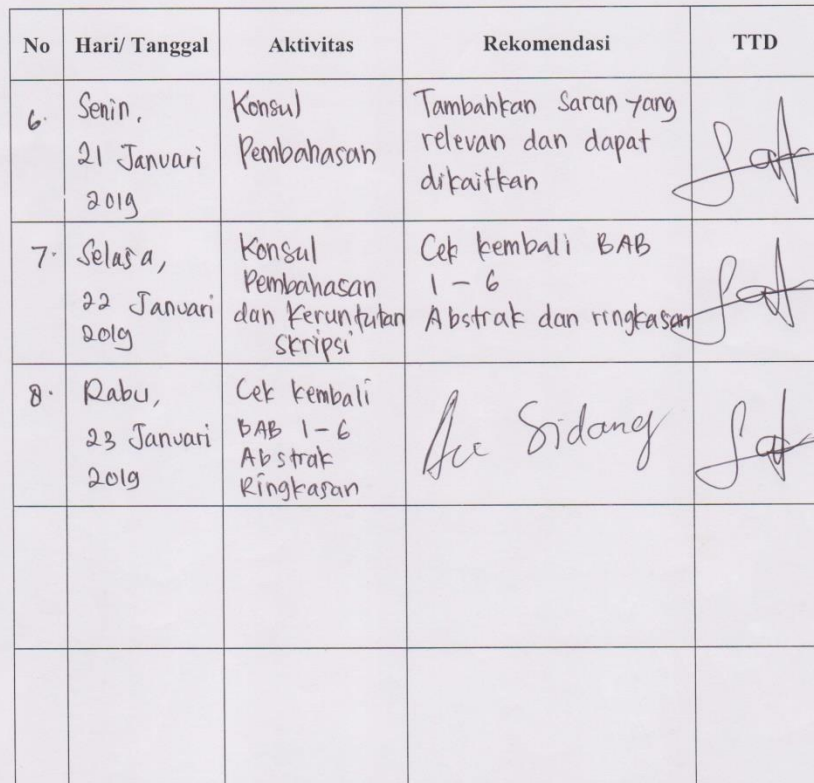 No Hari/ Tanggal Aktivitas Rekomendasi TTD
6.
Senin,
21 Januari
2019
Konsul
Pembahasan
Tambahkan Saran yang
relevan dan dapat
dikaitkan
7.
Selasa,
22 Januari
2019
Konsul
Pembahasan
dan Keruntutan
Skripsi
Cek kembali BAB
1 - 6
Abstrak dan ringkasan
8.
Rabu,
23 Januari
2019
Cek kembali
BAB 1-6
Abstrak
Ringkasan
Acc Sidang